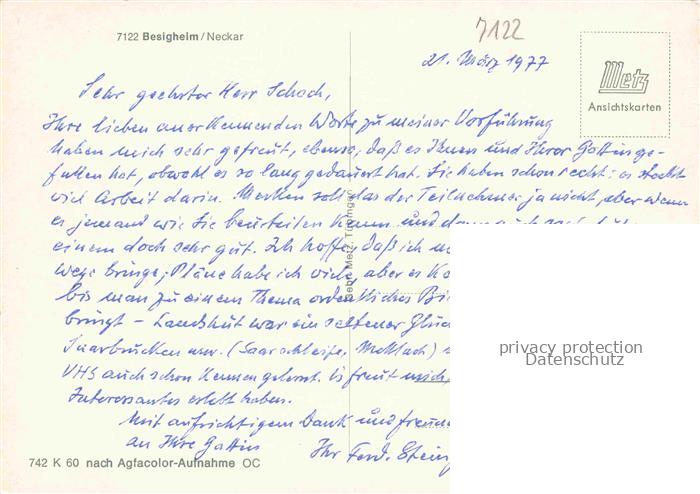 7122
7122 Besigheim/Neckar
21. März 1977
Metz
Ansichtskarten
Sehr geehrter Herr Schoch,
Ihre lieben anerkennenden Worte zu meiner Vorführung
haben mich sehr gefreut, ebenso, daß es Ihnen und Ihrer Gattin ge-
fallen hat, obwohl es so lang gedauert hat. Sie haben schon recht: es steckt
viel Arbeit darin. Merken soll das der Teilnehmer ja nicht, aber wenn
es jemand wie Sie beurteilen kann und dann auch
einem doch sehr gut. Ich hoffe, daß ich
wege bringe; Pläne habe ich viele, aber es
bis man zu einem Thema ordentliches
bringt – Landshut war ein seltener
Saarbrücken (Saarschleife, Mettlach)
VHS auch schon kennen gelernt. Es freut mich,
Interessantes erlebt haben.
Mit aufrichtigem Dank und
an Ihre Gattin Ihr Ferd.
Gebr. Metz, Tübingen
privacy protection
Datenschutz
742 K 60 nach Agfacolor-Aufnahme OC